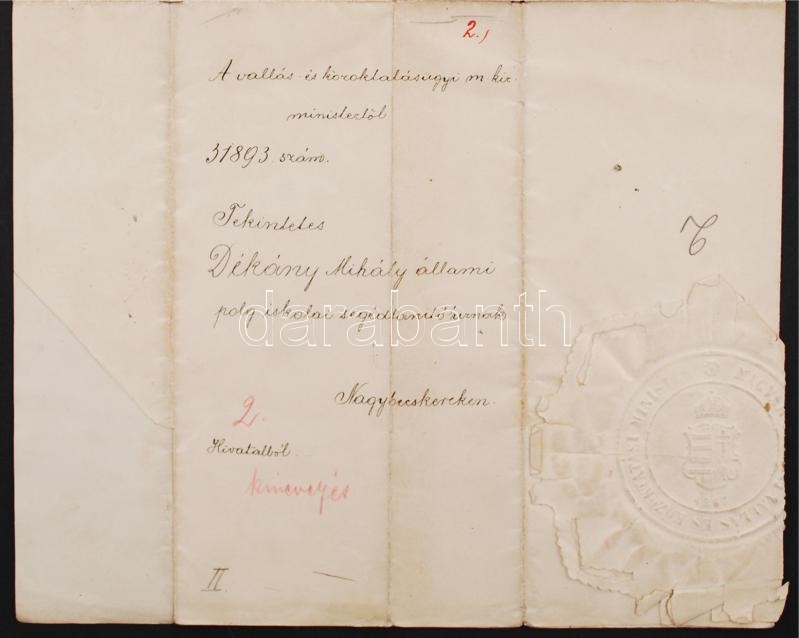 2.)
A vallás és közoktatásügyi m kir.
ministertől
31893. szám.
Tekintetes
Dékány Mihály állami
polg iskolai segédtanító úrnak
darabanth
Nagybecskereken.
2.
Hivatalból
kinevezés
II.
2
MAGYAR VALLÁS ÉS KÖZOKTATÁSI MINIST